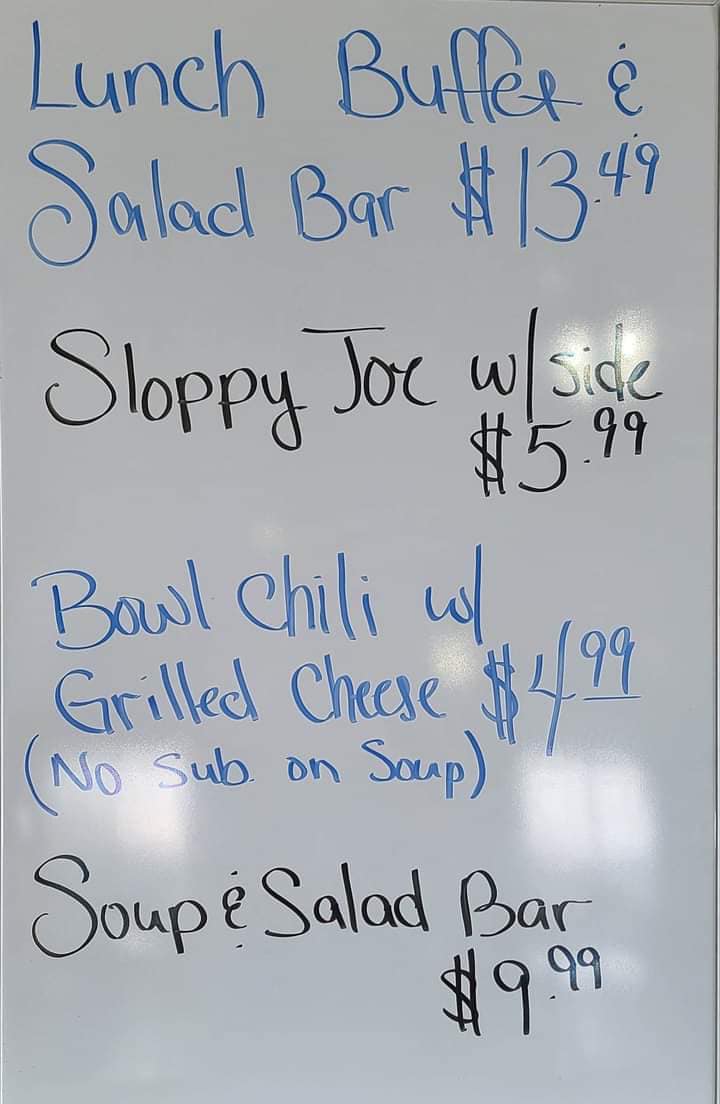 Lunch Buffet &
Salad Bar $13.49
Sloppy Joe w/side
$5.99
Bowl Chili w/
Grilled Cheese $4.99
(No Sub. on Soup)
Soup & Salad Bar
$9.99